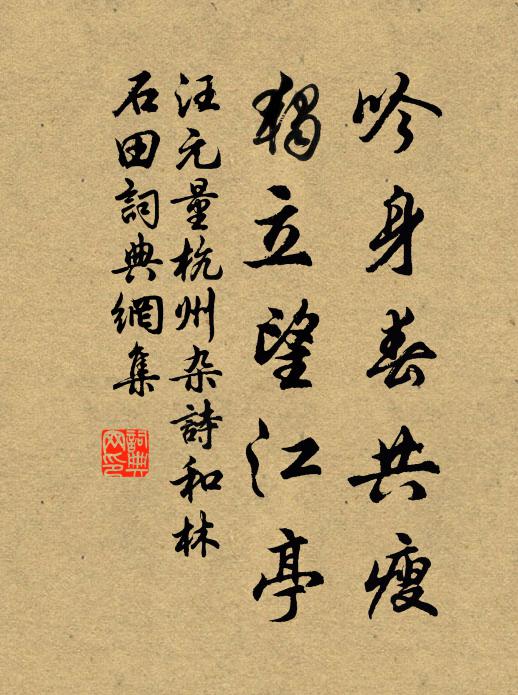 吟身春共瘦
獨立望江亭
汪元量杭州杂詩和林
石田詞典網集
詞典網印